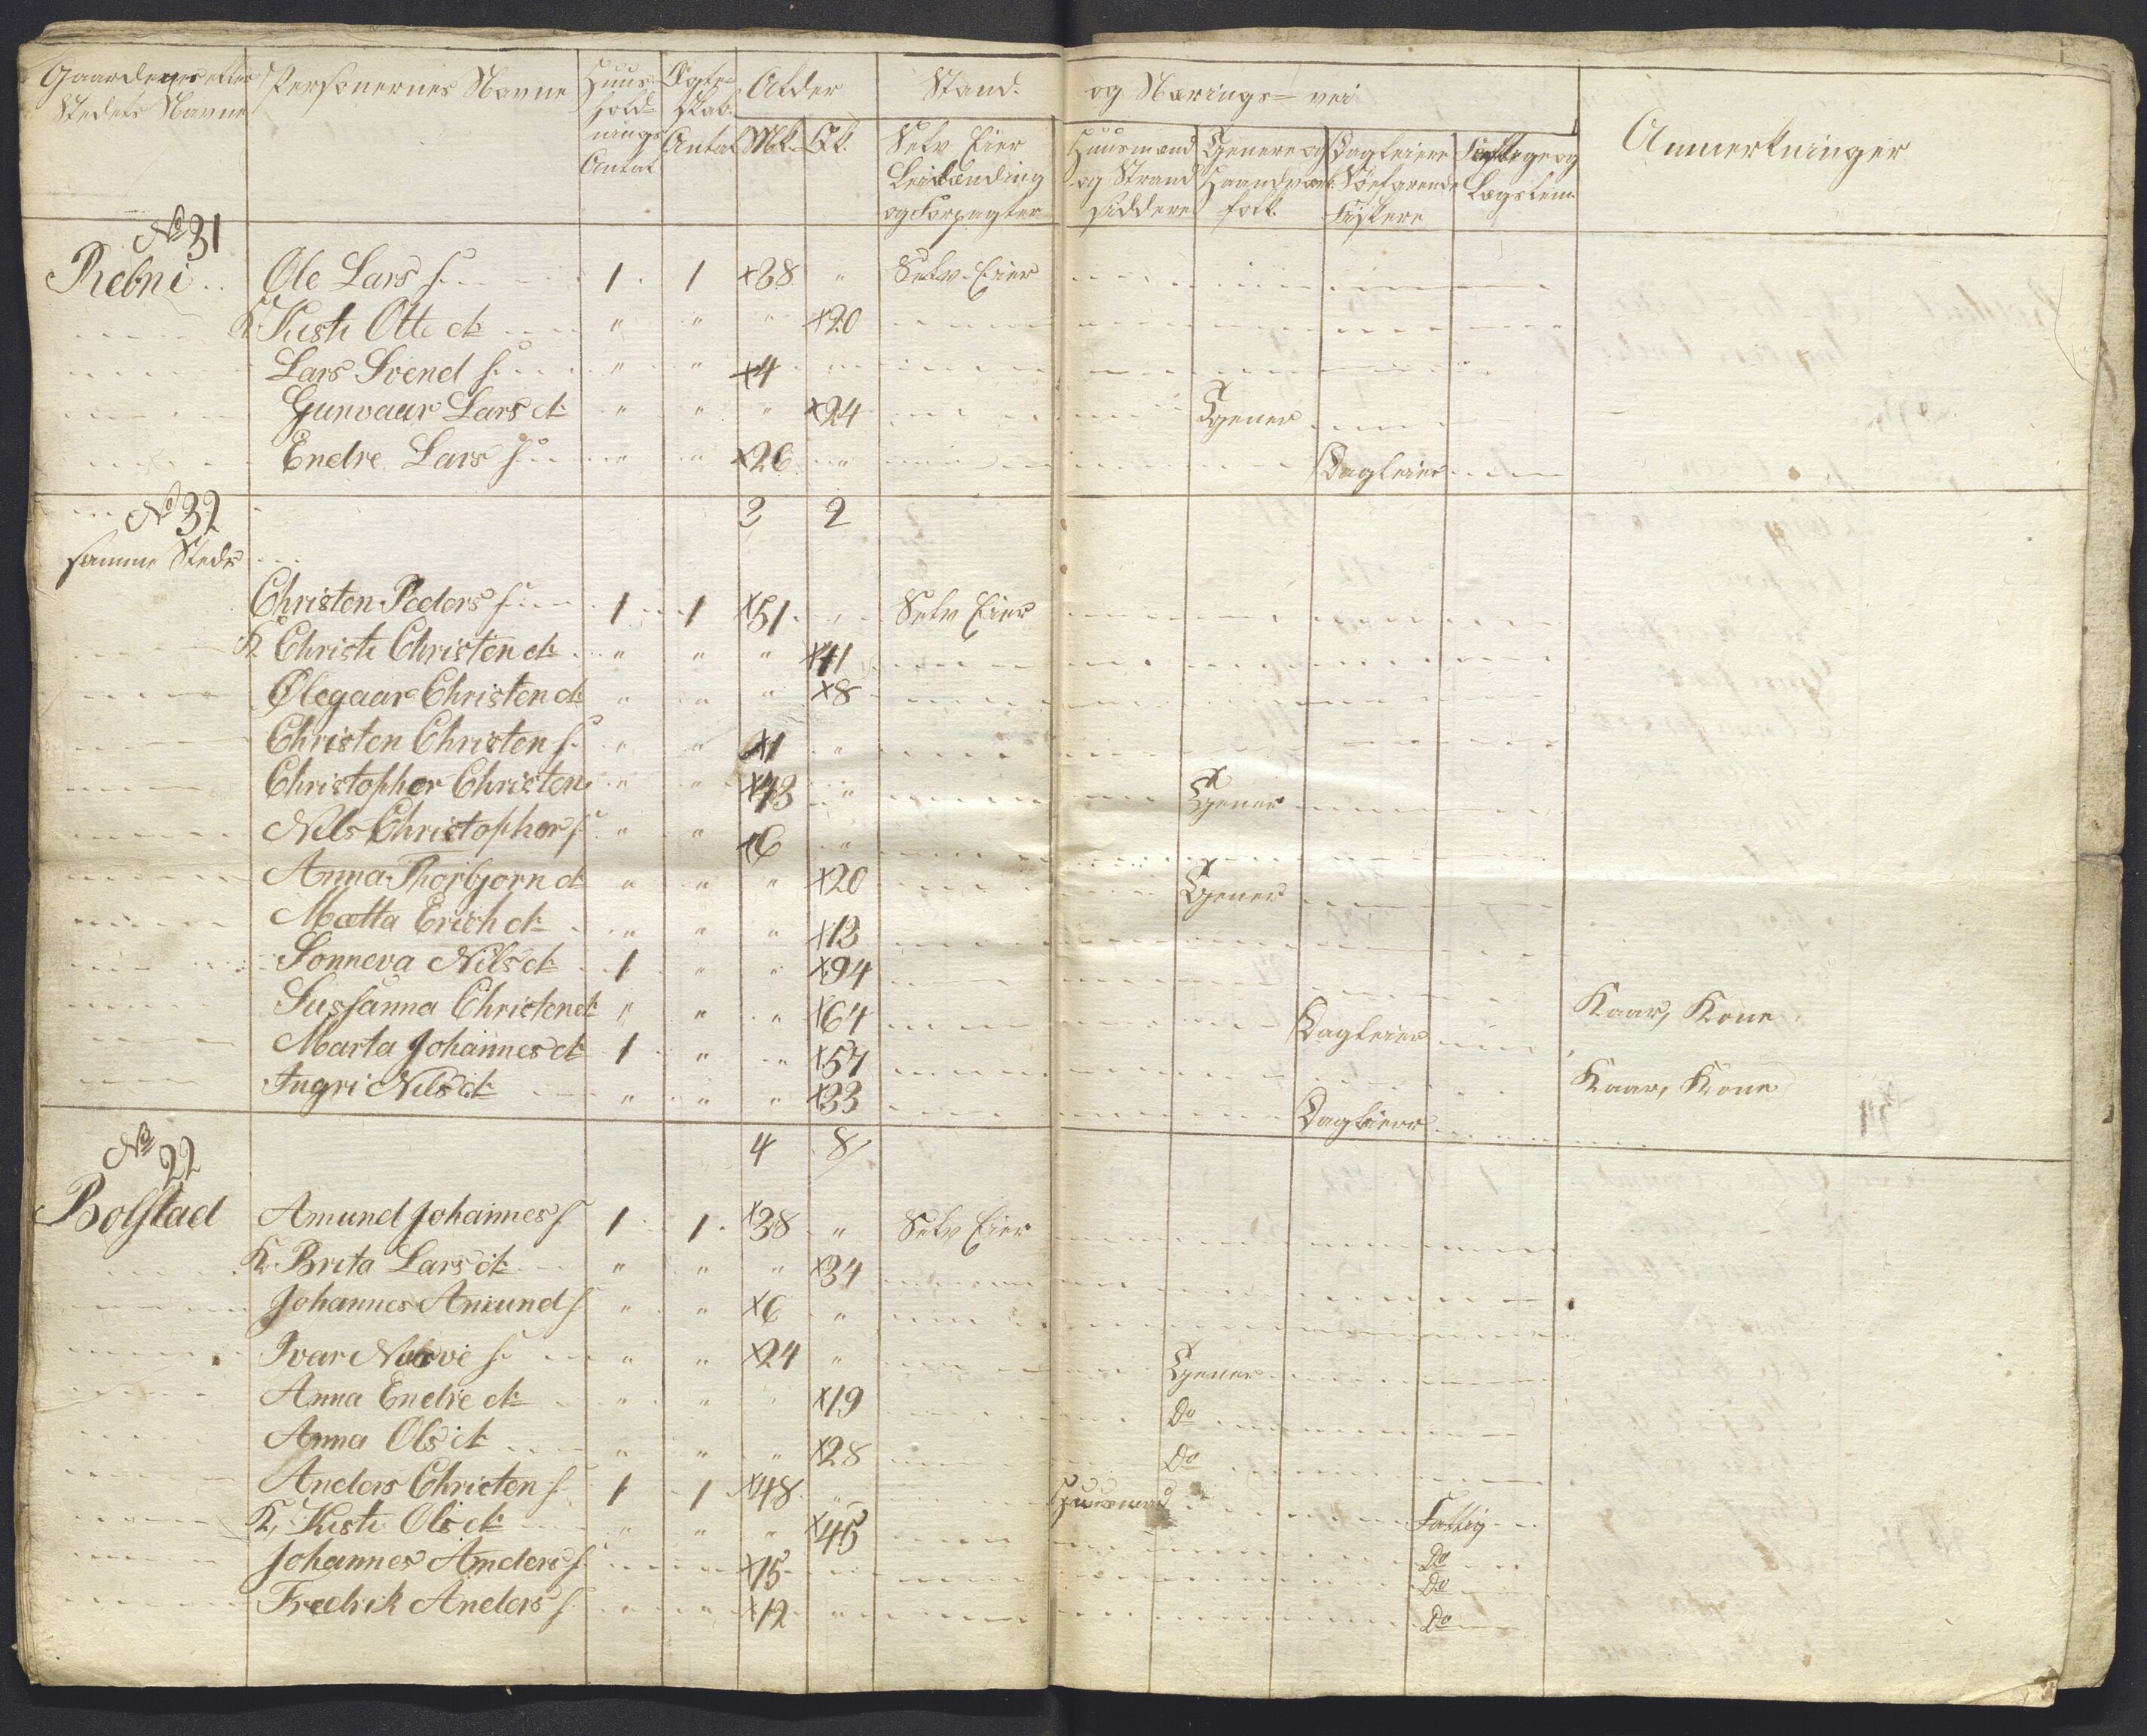 Gaardenes etter Stedets Navne Personernes Navne Huus-hold-nings Antal Ægte-skab. Antal Alder Stand- og Nærings- vei Anmerkninger
Mk. Qk. Selv Eier Leilænding og Forpagter Huusmænd og Strand siddere Tjenere og Haandværk folk. Dagleiere Søefarende Fiskere Fattige og Lægslem.
No 31
Rebni Ole Lars s. 1 1 x38 " Selv Eier
K Kisti Otte d. " " " x20
Lars Svend s. " " x4
Gunvaar Lars d. " " " x24 Tjener
Endre Lars s. " " x26 " Dagleier
3 2
No 32
samme Steds
Christen Peders s. 1 1 x51 " Selv Eier
K Christi Christen d. " " " x41
Ølegaar Christen d. " " " x8
Christen Christen s. " " x1 "
Christopher Christen " " x43 " Tjener
Nils Christopher s. " " x6 "
Anna Thorbjørn d. " " " x20 Tjener
Mætta Erich d. " " " x13
Sonneva Nils d. 1 " " x94 Kaar, Kone
Sussanna Christen d. " " " x64 Dagleier
Marta Johannes d. 1 " " x57 Kaar, Kone
Ingri Nils d. " " " x33 Dagleier
4 8
No 22
Bolstad Amund Johannes s. 1 1 x38 " Selv Eier
K Brita Lars d. " " " x34
Johannes Amund s. " " x6 "
Ivar s. " " x24 " Tjener
Anna Endre d. " " " x19 Do
Anna Ols d. " " " x28 Do
Anders Christen s. 1 1 x48 " Huusmand Fattig
K, Kisti Ols d. " " " x45 Do
Johannes Anders s. x15 Do
Fredrik Anders s. " " x12 " Do